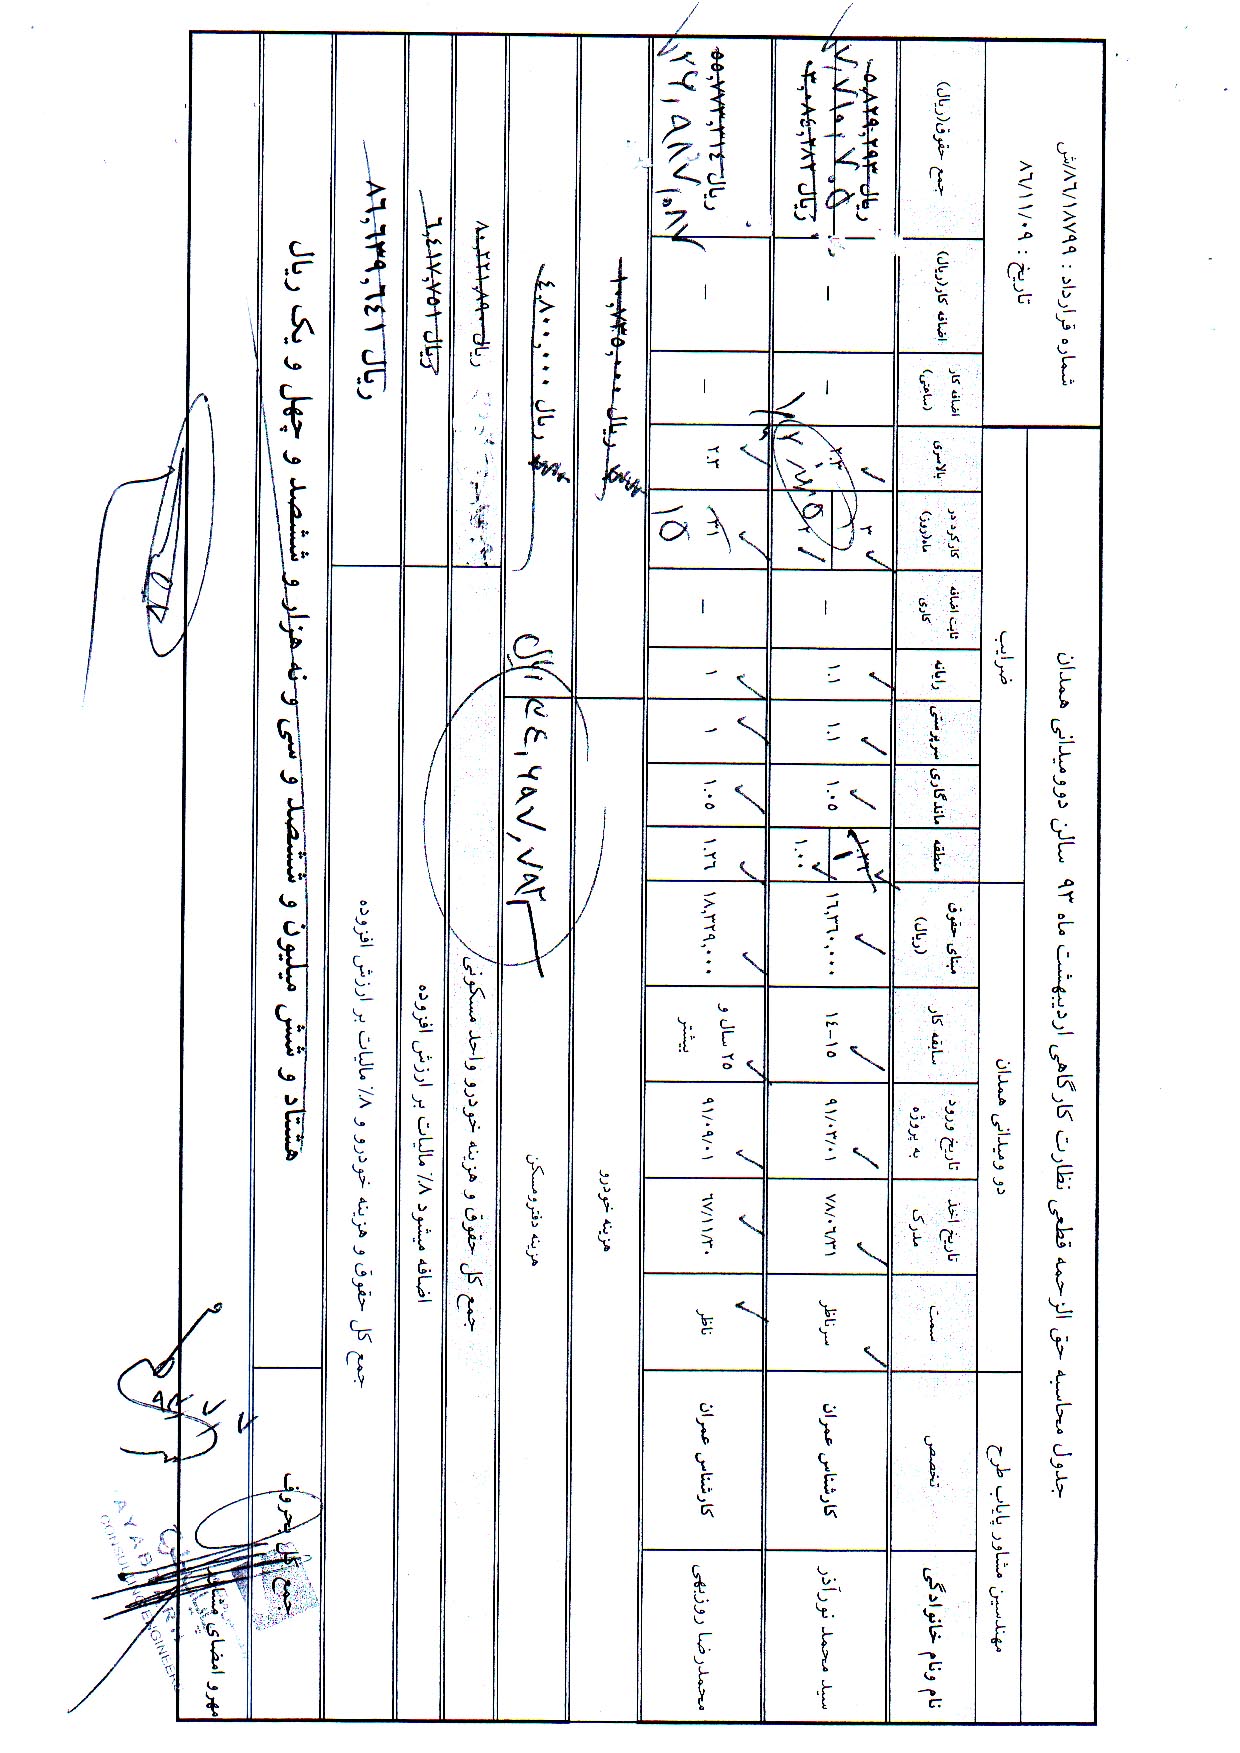 جدول محاسبه حق الزحمه قطعی نظارت کارگاهی اردیبهشت ماه ۹۳ سالن دوومیدانی همدان
شماره قرارداد : ۸۶/۱۸۷۹۹/ش
تاریخ : ۸۶/۱۱/۰۹
مهندسین مشاور پایاب طرح
دو ومیدانی همدان
ضرایب
نام ونام خانوادگی
تخصص
سمت
تاریخ اخذ مدرک
تاریخ ورود به پروژه
سابقه کار
مبنای حقوق (ریال)
منطقه
ماندگاری
سرپرستی
رایانه
ثابت اضافه کاری
کارکرد در ماه(روز)
بالاسری
اضافه کار (ساعتی)
اضافه کار(ریال)
جمع حقوق(ریال)
سید محمد نورآذر
کارشناس عمران
سرناظر
۷۸/۰۶/۳۱
۹۱/۰۳/۰۱
۱۴-۱۵
۱۶,۳۶۰,۰۰۰
۱.۲۶
۱
۱.۰۰
۱.۰۵
۱.۱
۱.۱
–
۳
۲
۲.۳
–
–
ریال ۵,۸۲۹,۲۹۳
ریال ۳,۰۸۴,۲۸۲
محمدرضا روزبهی
کارشناس عمران
ناظر
۶۷/۱۱/۳۰
۹۱/۰۹/۰۱
۲۵ سال و بیشتر
۱۸,۳۲۹,۰۰۰
۱.۲۶
۱.۰۵
۱
۱
–
۳۱
۱۵
۲.۳
–
–
ریال ۵۵,۷۷۳,۳۱۴
۲۶,۹۸۷,۰۸۷
هزینه خودرو
ریال ۱۰,۷۳۵,۰۰۰
هزینه دفترومسکن
ریال ۴,۸۰۰,۰۰۰
۳۴,۶۹۷,۷۹۲ ریال
جمع کل حقوق و هزینه خودرو واحد مسکونی
ریال ۸۰,۲۲۱,۸۹۰
اضافه میشود ۸٪ مالیات بر ارزش افزوده
ریال ۶,۴۱۷,۷۵۱
جمع کل حقوق و هزینه خودرو و ۸٪ مالیات بر ارزش افزوده
ریال ۸۶,۶۳۹,۶۴۱
جمع کل بحروف
هشتاد و شش میلیون و ششصد و سی و نه هزار و ششصد و چهل و یک ریال
مهر و امضای مشاور
CONSULTING ENGINEERS